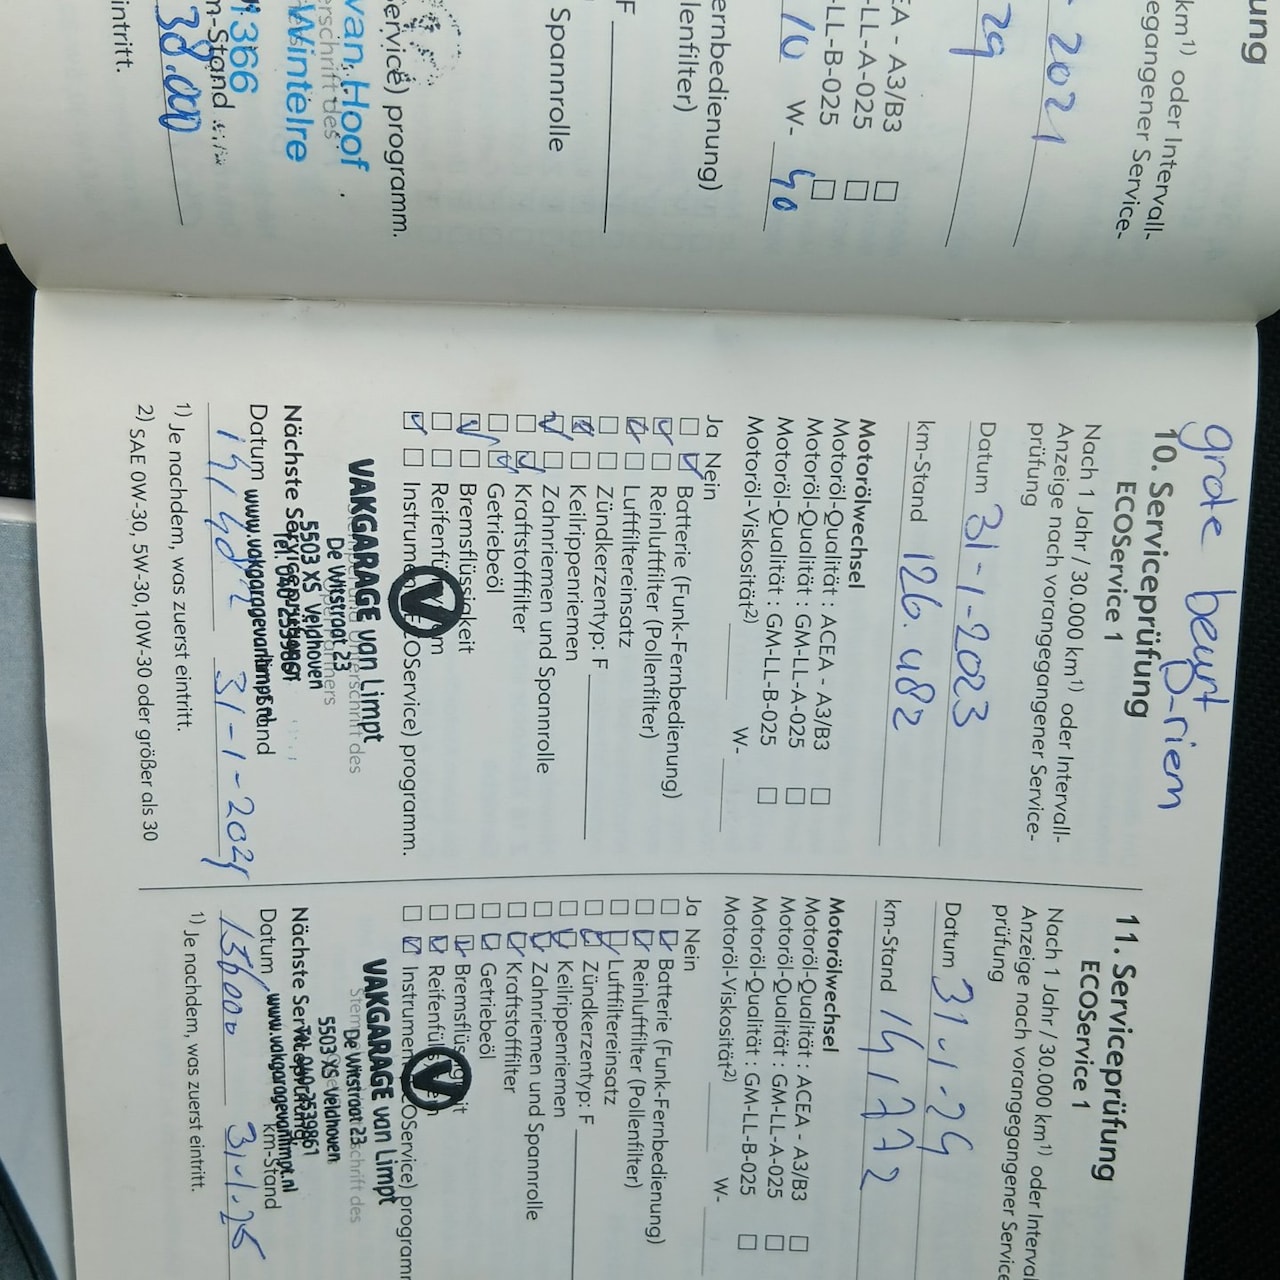 ung
km¹⁾ oder Intervall-
egangener Service-
2021
29
EA - A3/B3
-LL-A-025
-LL-B-025
10 W- 40
ernbedienung)
lenfilter)
F
Spannrolle
ervice) programm.
erschrift des
van Hoof
Wintelre
1366
m-Stand
38.000
intritt.
grote beurt
D-riem
10. Serviceprüfung
ECOService 1
Nach 1 Jahr / 30.000 km¹⁾ oder Intervall-
Anzeige nach vorangegangener Service-
prüfung
Datum 31-1-2023
km-Stand 126.482
Motorölwechsel
Motoröl-Qualität : ACEA - A3/B3
Motoröl-Qualität : GM-LL-A-025
Motoröl-Qualität : GM-LL-B-025
Motoröl-Viskosität²⁾ W-
Ja Nein
Batterie (Funk-Fernbedienung)
Reinluftfilter (Pollenfilter)
Luftfiltereinsatz
Zündkerzentyp: F
Keilrippenriemen
Zahnriemen und Spannrolle
Kraftstofffilter
Getriebeöl
Bremsflüssigkeit
Reifenfü m
Instrume OService) programm.
V
VAKGARAGE van Limpt
De Witstraat 23
5503 XS Veldhoven
Tel. 040-2539861
www.vakgaragevanlimpt.nl
Nächste Service
Datum
31-1-2024
1) Je nachdem, was zuerst eintritt.
2) SAE 0W-30, 5W-30,10W-30 oder größer als 30
11. Serviceprüfung
ECOService 1
Nach 1 Jahr / 30.000 km¹⁾ oder Interval
Anzeige nach vorangegangener Service
prüfung
Datum 31-1-24
km-Stand 141772
Motorölwechsel
Motoröl-Qualität : ACEA - A3/B3
Motoröl-Qualität : GM-LL-A-025
Motoröl-Qualität : GM-LL-B-025
Motoröl-Viskosität²⁾ W-
Ja Nein
Batterie (Funk-Fernbedienung)
Reinluftfilter (Pollenfilter)
Luftfiltereinsatz
Zündkerzentyp: F
Keilrippenriemen
Zahnriemen und Spannrolle
Kraftstofffilter
Getriebeöl
Bremsflüs it
Reifenfü
Instrumen OService) programm
V
VAKGARAGE van Limpt
De Witstraat 23
5503 XS Veldhoven
Tel. 040-2539861
www.vakgaragevanlimpt.nl
Nächste Service
Datum km-Stand
156000 31-1-25
1) Je nachdem, was zuerst eintritt.